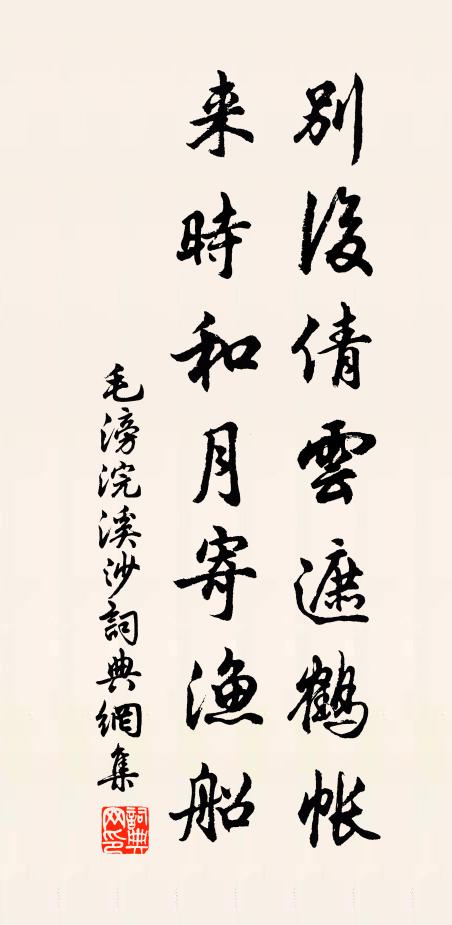 别後倩雲遮鶴帳
来時和月寄漁船
毛滂浣溪沙詞典網集
詞典网印